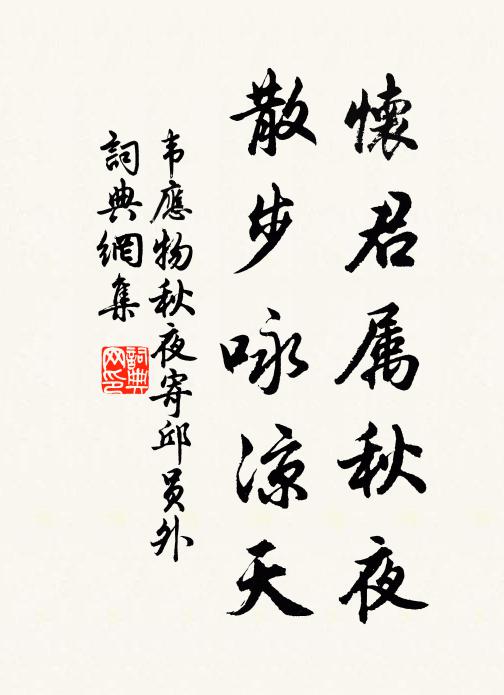 懷君属秋夜
散步咏涼天
韦應物秋夜寄邱员外
詞典網集
詞典网印